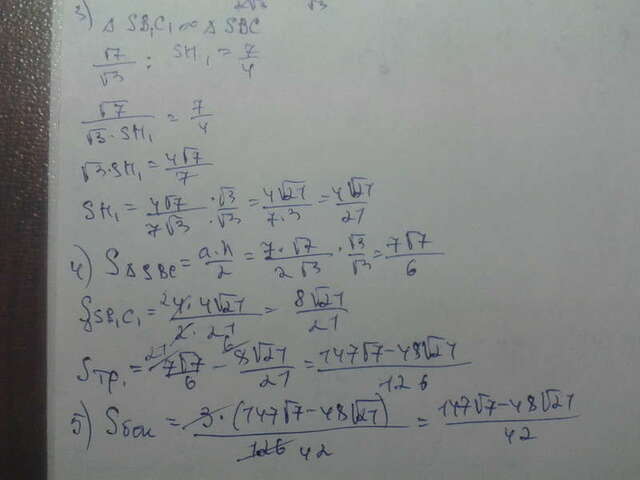 2√3 √3
3) △ SB₁C₁ ∾ △ SBC
√7/√3 : SH₁ = 7/4
√7/(√3 · SH₁) = 7/4
√3 · SH₁ = 4√7/7
SH₁ = 4√7/(7√3) · √3/√3 = 4√21/(7·3) = 4√21/21
4) S△SBC = a·h/2 = 7·√7/(2√3) · √3/√3 = 7√7/6
S SB₁C₁ = 4·4√21/(2·21) = 8√21/21
Sтр. = 7√7/6 - 8√21/21 = (147√7-48√21)/126
5) Sбок = 3·(147√7-48√21)/126 42 = (147√7-48√21)/42